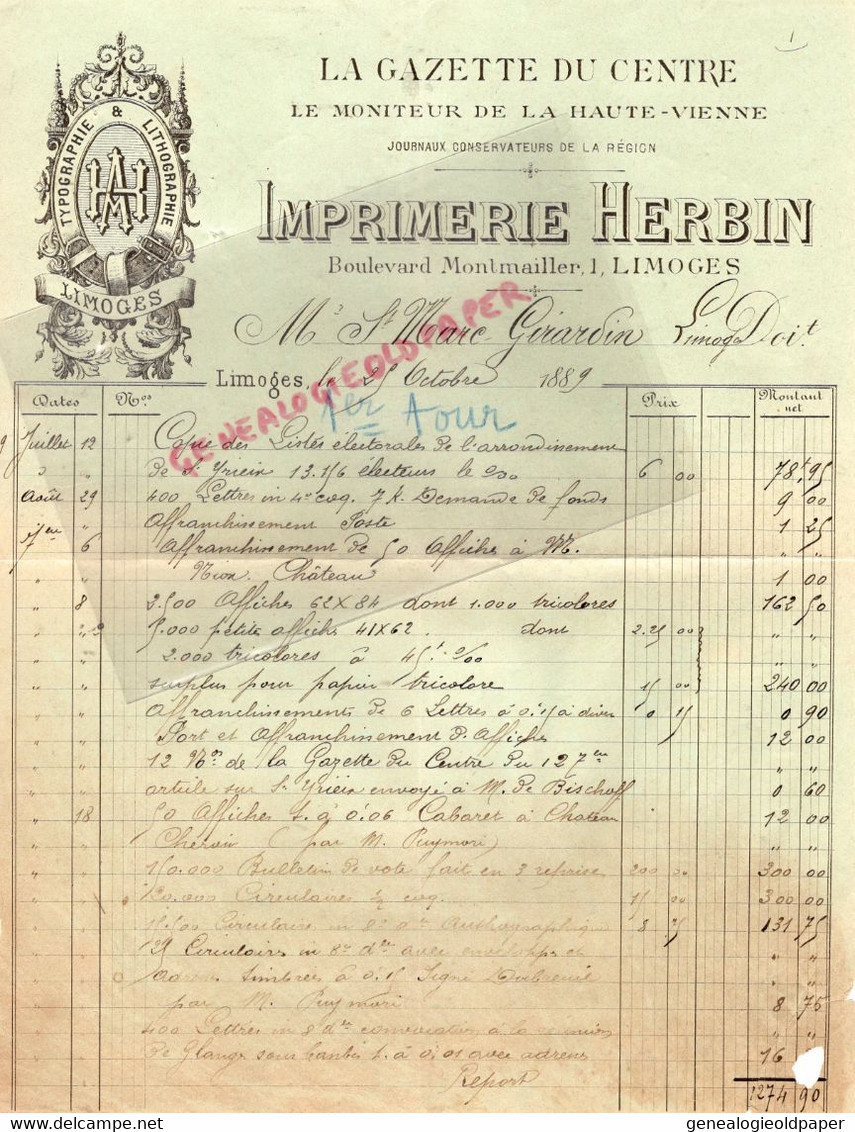 1
LA GAZETTE DU CENTRE
LE MONITEUR DE LA HAUTE-VIENNE
JOURNAUX CONSERVATEURS DE LA RÉGION
TYPOGRAPHIE & LITHOGRAPHIE
AH
LIMOGES
IMPRIMERIE HERBIN
Boulevard Montmailler, 1, LIMOGES
Mr St Marc Girardin Limoges Doit
Limoges, le 25 Octobre 1889
GENEALOGIEOLDPAPER
1er Tour
Dates Nos Prix Montant net
Juillet 12 Copie des Listes électorales de l'arrondissement
" " de St Yrieix 13.156 electeurs le 6 00 78f 95
Août 29 400 Lettres in 4o coq. 7 k. Demande de fonds 9 00
" Affranchissement Poste 1 25
7bre 6 Affranchissement de 50 Affiches à M. " "
" " Nion Château 1 00
" 8 2.500 Affiches 62 X 84 dont 1.000 tricolores 162 50
5.000 petites affiches 41 X 62. dont 2.25 00
" " 2.000 tricolores à 45f. " "
" " surplus pour papier tricolore 15 00 240 00
" " Affranchissements de 6 Lettres à 0.15 à divers 0 15 0 90
" " Port et Affranchissement d'Affiches 12 00
" " 12 Nos de la Gazette du Centre du 12 7bre " "
" " article sur St Yrieix envoyé à M. de Bischoff 0 60
" 18 50 Affiches t. à 0.06 Cabaret à Chateau 12 00
" " Chervix (par M. Puymori) " "
" " 150.000 Bulletin de vote fait en 3 reprises 200 00 300 00
" " 130.000 Circulaires ½ coq. 15 00 300 00
" " 15.500 Circulaire in 8o do Authographique 8 75 131 75
" " 125 Circulaires in 8o do avec enveloppes et " "
" " adresses timbrées à 0.15 Signé Dubreuil " "
" " par M. Puymori 8 75
" " 400 Lettres in 8 do convocation à la reunion " "
" " de Glange sous bandes t. à 0.01 avec adresse 16
Report 1274 90
delcampe.net genealogieoldpaper